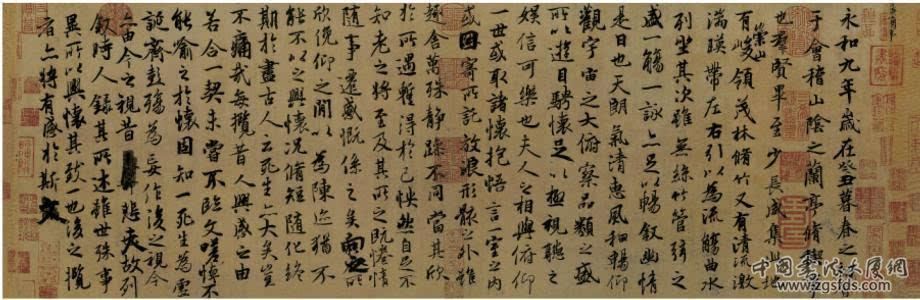 永和九年歲在癸丑暮春之初
于會稽山陰之蘭亭脩禊事
也羣賢畢至少長咸集此地
有崇山峻領茂林脩竹又有清流激
湍暎帶左右引以為流觴曲水
列坐其次雖無絲竹管弦之
盛一觴一詠亦足以暢敘幽情
是日也天朗氣清惠風和暢仰
觀宇宙之大俯察品類之盛
所以遊目騁懷足以極視聽之
娛信可樂也夫人之相與俯仰
一世或取諸懷抱悟言一室之內
或因寄所託放浪形骸之外雖
趣舍萬殊靜躁不同當其欣
於所遇暫得於己怏然自足不
知老之將至及其所之既惓情
隨事遷感慨係之矣向之所
欣俛仰之閒以為陳迹猶不
能不以之興懷況脩短隨化終
期於盡古人云死生亦大矣豈
不痛哉每攬昔人興感之由
若合一契未嘗不臨文嗟悼不
能喻之於懷固知一死生為虛
誕齊彭殤為妄作後之視今
亦由今之視昔悲夫故列
敘時人錄其所述雖世殊事
異所以興懷其致一也後之攬
者亦將有感於斯文
中国书法大展网
www.zgsfds.com